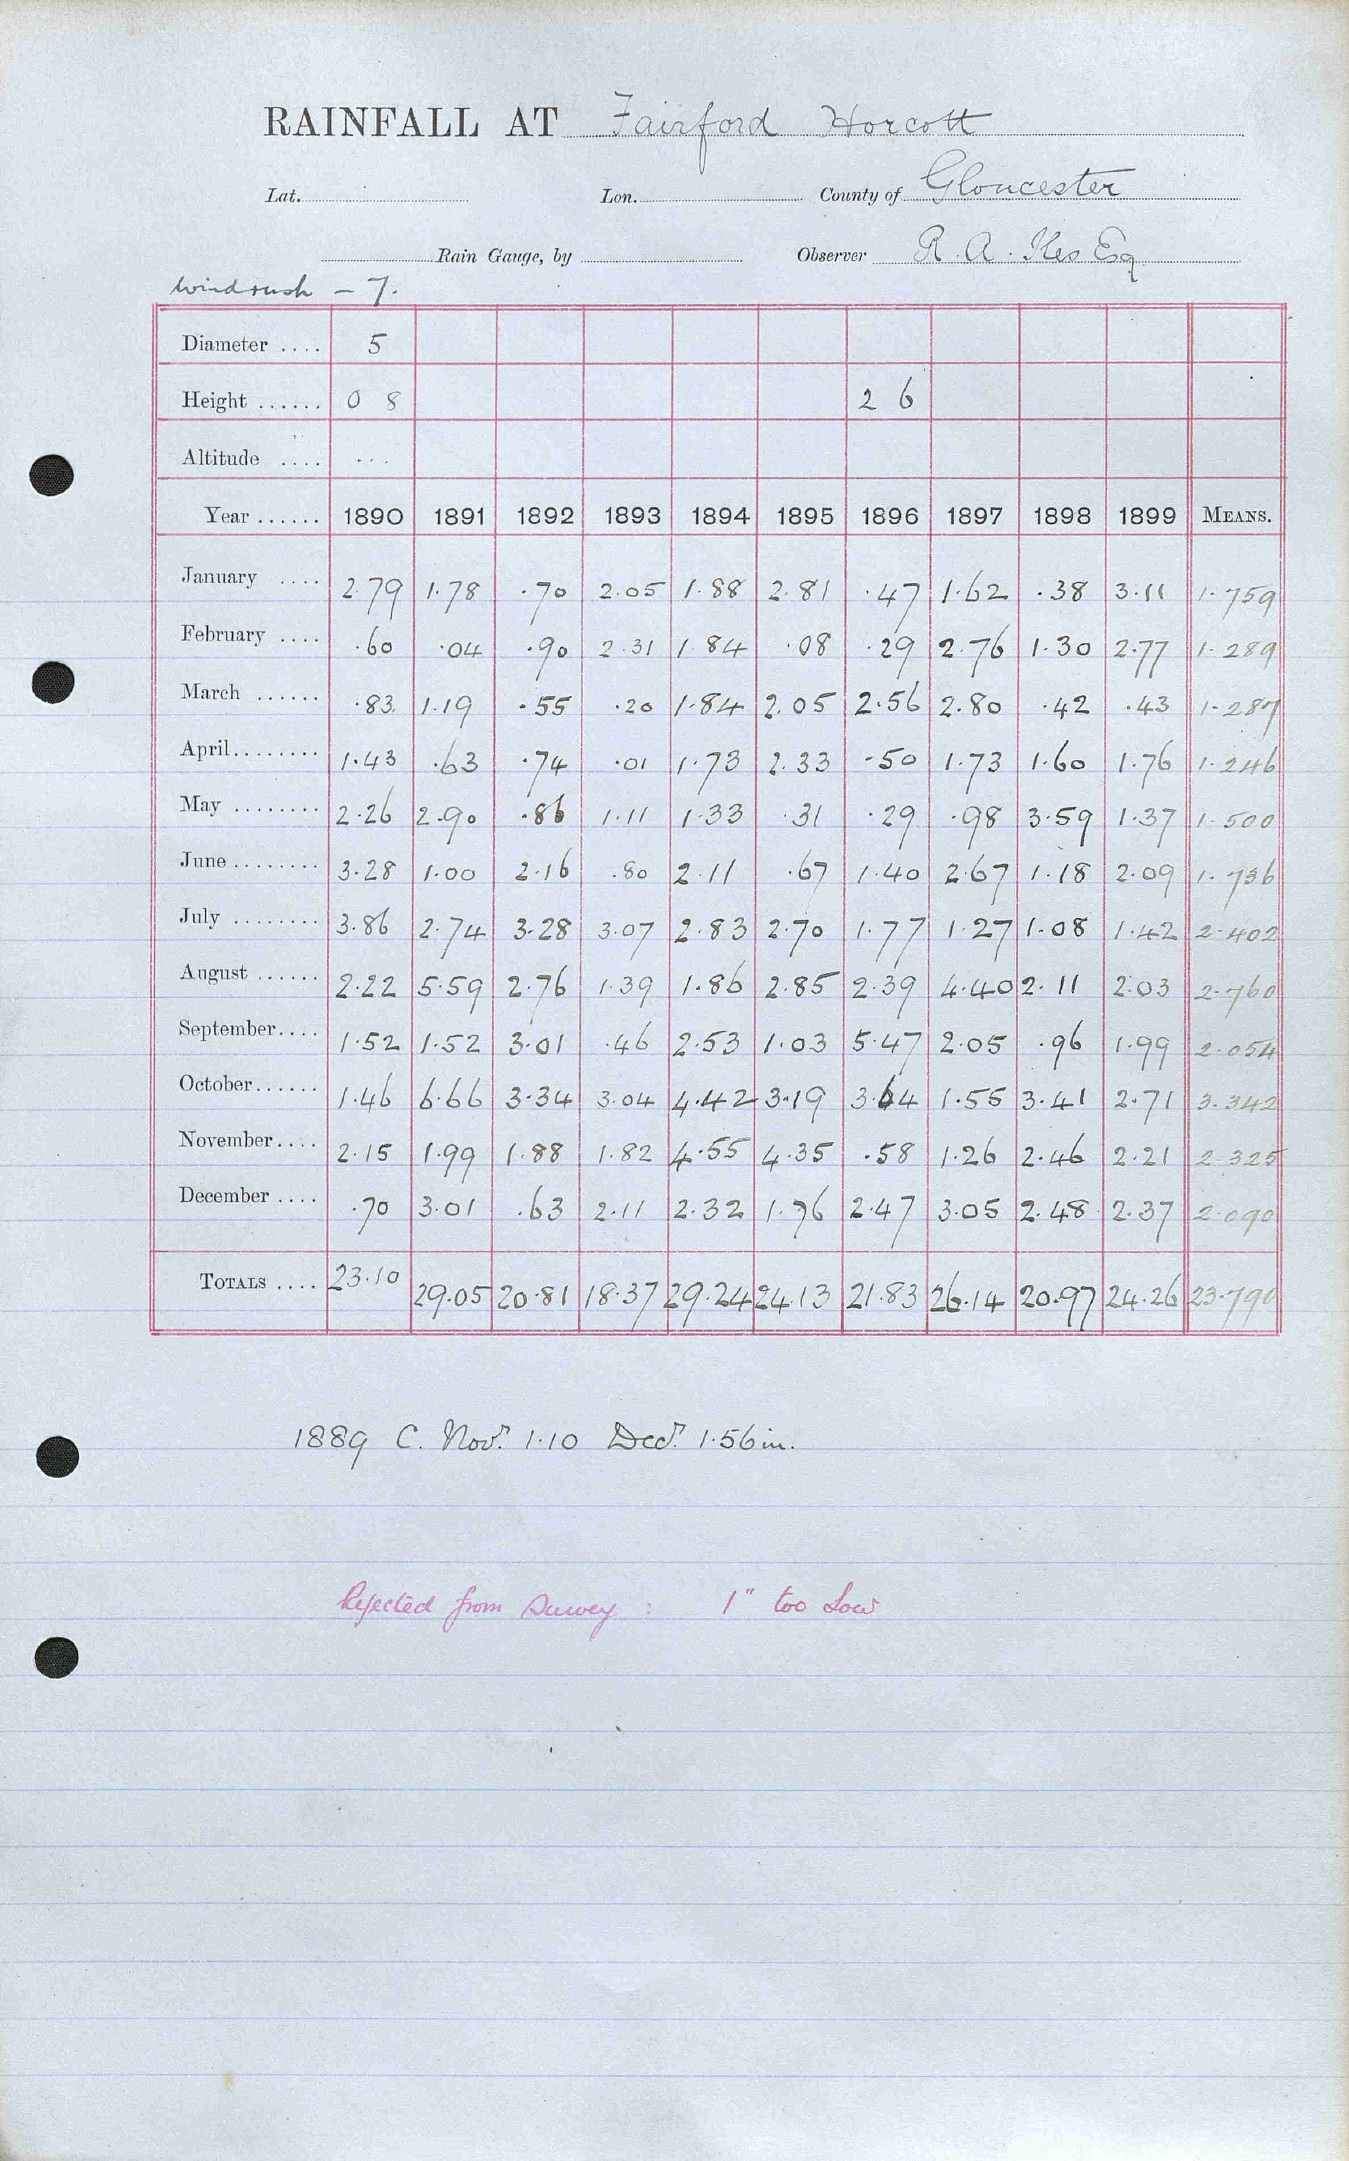 RAINFALL AT Fairford Horcott
Lat. Lon. County of Gloucester
Rain Gauge, by Observer R. A. Iles Esq
Windrush – 7.
Diameter .... 5
Height ...... 0 8 2 6
Altitude .... ...
Year ...... 1890 1891 1892 1893 1894 1895 1896 1897 1898 1899 MEANS.
January .... 2.79 1.78 .70 2.05 1.88 2.81 .47 1.62 .38 3.11 1.759
February .... .60 .04 .90 2.31 1.84 .08 .29 2.76 1.30 2.77 1.289
March ...... .83 1.19 .55 .20 1.84 2.05 2.56 2.80 .42 .43 1.287
April........ 1.43 .63 .74 .01 1.73 2.33 .50 1.73 1.60 1.76 1.246
May ........ 2.26 2.90 .86 1.11 1.33 .31 .29 .98 3.59 1.37 1.500
June ........ 3.28 1.00 2.16 .80 2.11 .67 1.40 2.67 1.18 2.09 1.736
July ........ 3.86 2.74 3.28 3.07 2.83 2.70 1.77 1.27 1.08 1.42 2.402
August ...... 2.22 5.59 2.76 1.39 1.86 2.85 2.39 4.40 2.11 2.03 2.760
September.... 1.52 1.52 3.01 .46 2.53 1.03 5.47 2.05 .96 1.99 2.054
October...... 1.46 6.66 3.34 3.04 4.42 3.19 3.64 1.55 3.41 2.71 3.342
November.... 2.15 1.99 1.88 1.82 4.55 4.35 .58 1.26 2.46 2.21 2.325
December .... .70 3.01 .63 2.11 2.32 1.76 2.47 3.05 2.48 2.37 2.090
TOTALS .... 23.10 29.05 20.81 18.37 29.24 24.13 21.83 26.14 20.97 24.26 23.790
1889 C. Novr. 1.10 Decr. 1.56 in.
Rejected from Survey : 1" too low